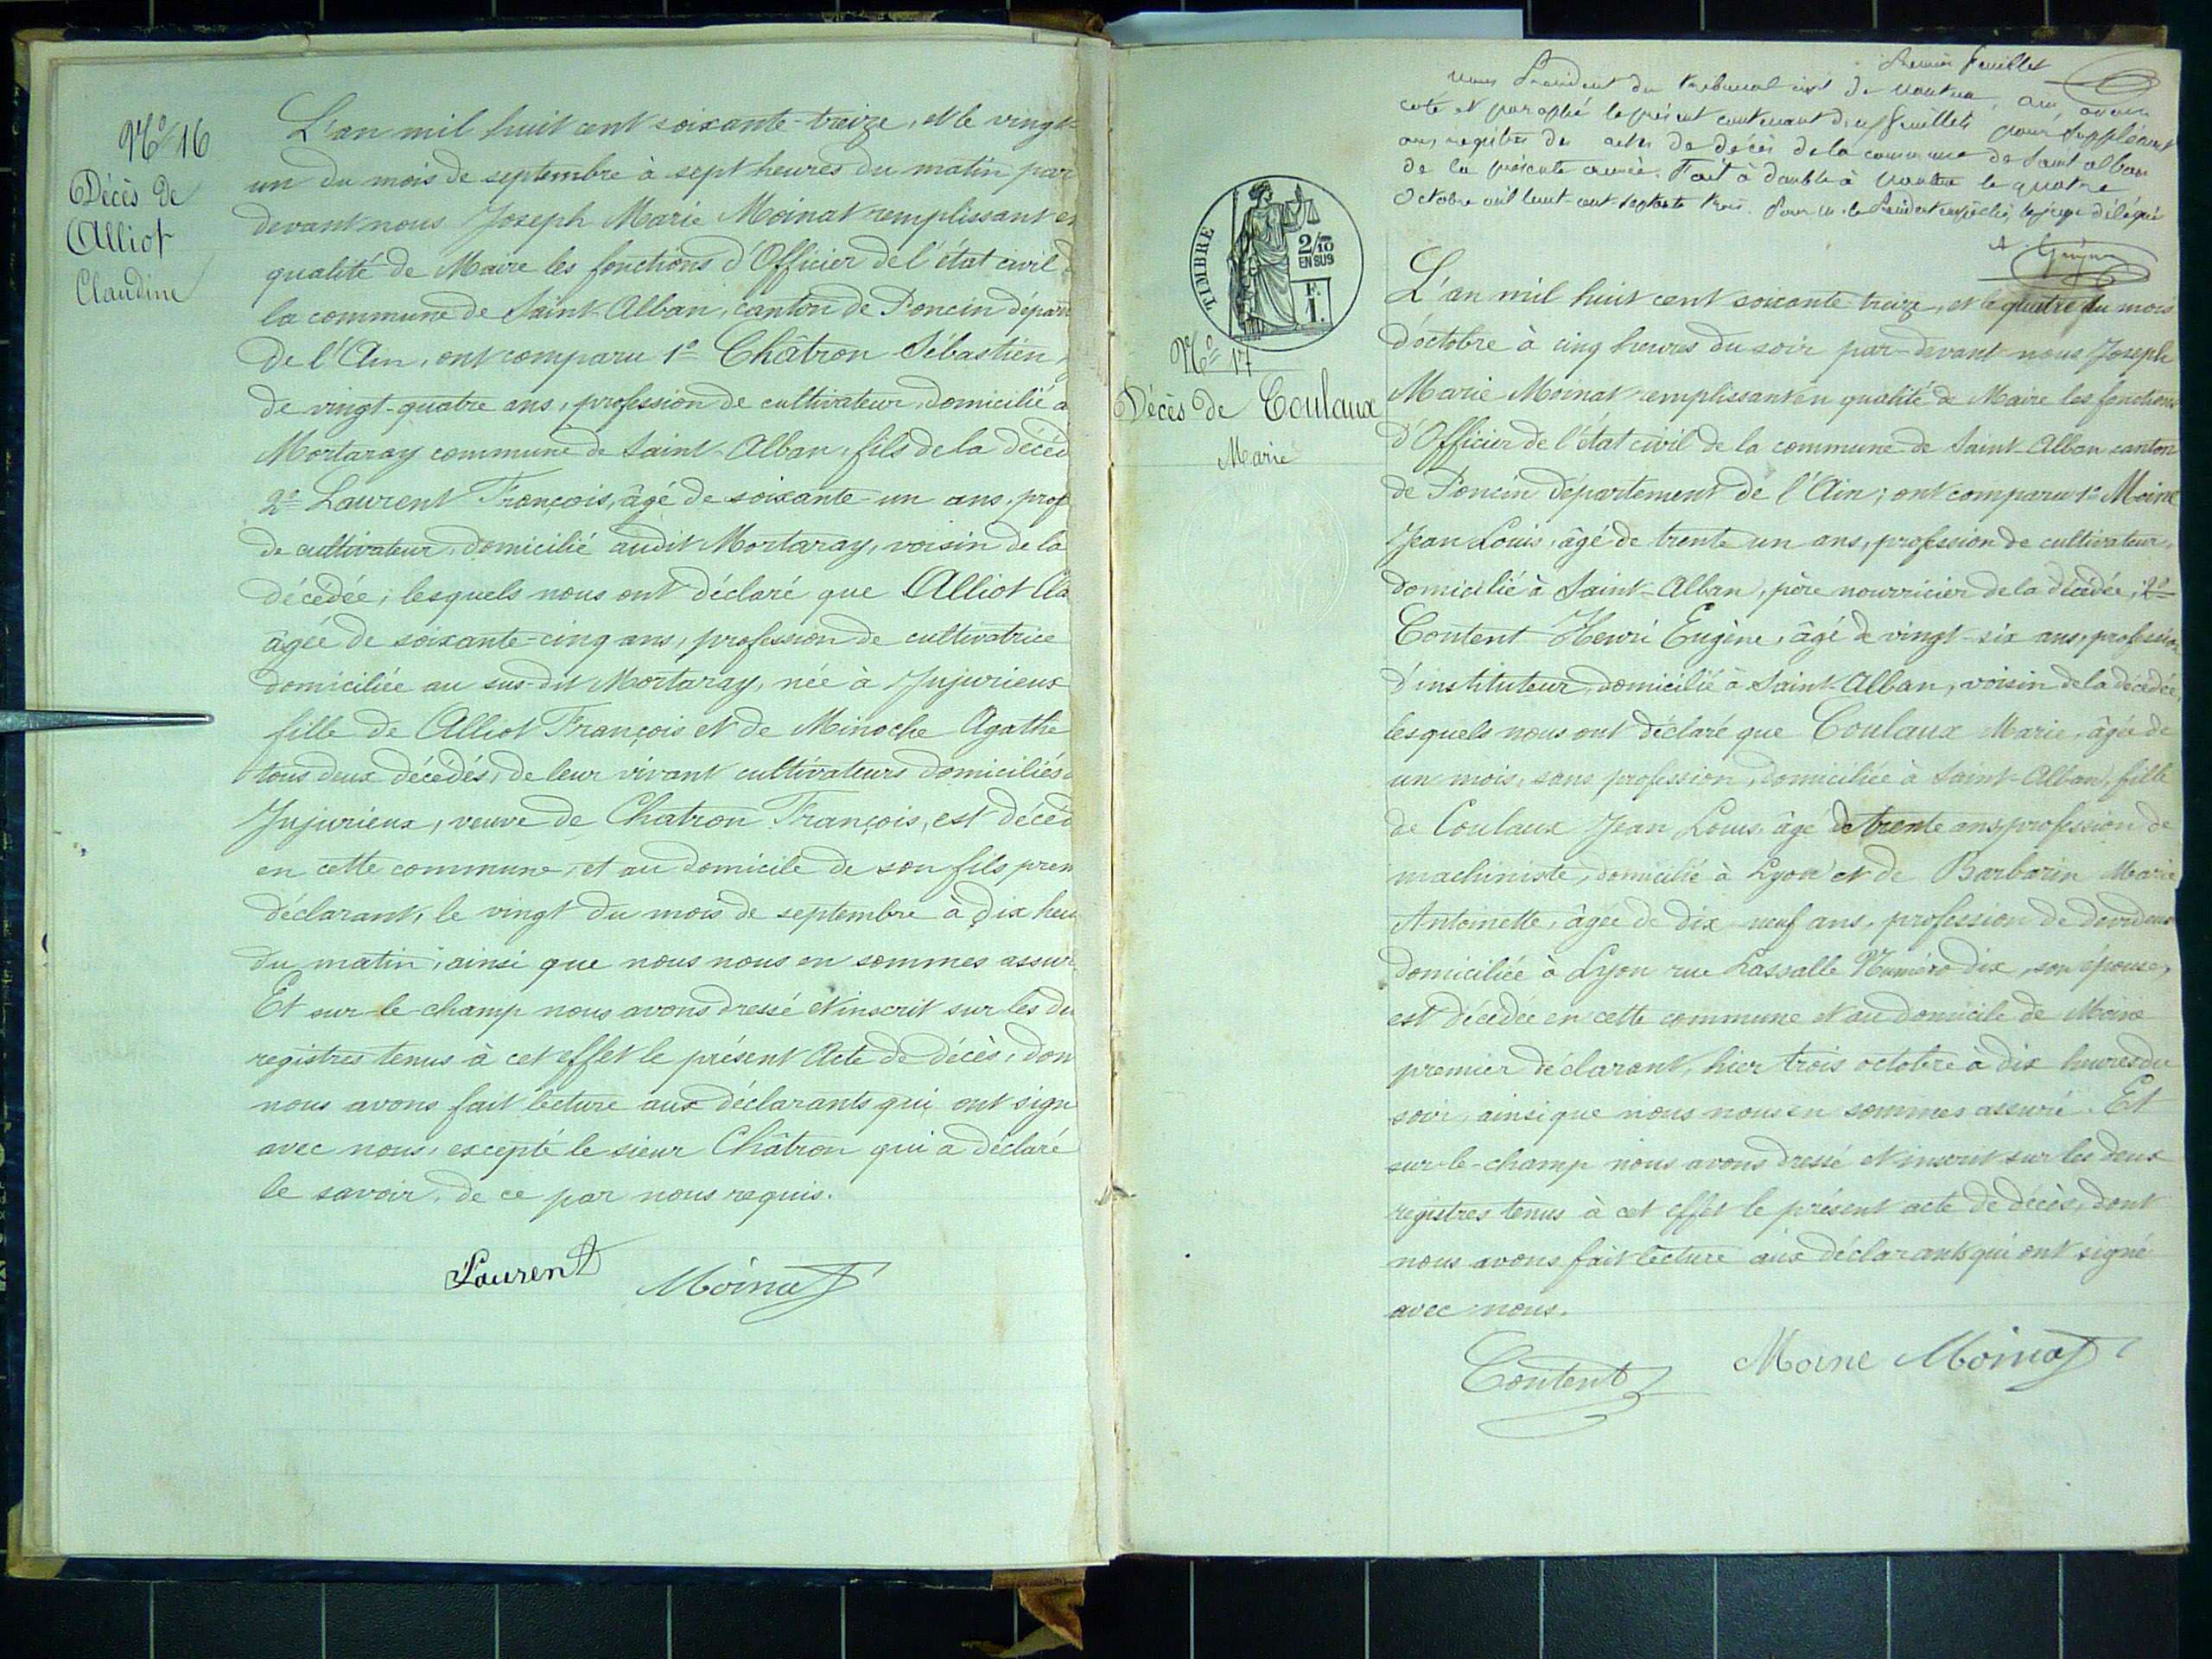 No 16
Décès de
Alliot
Claudine
L'an mil huit cent soixante-treize, et le vingt-
un du mois de septembre à sept heures du matin par
devant nous Joseph Marie Moinat remplissant en
qualité de Maire les fonctions d'Officier de l'état civil d
la commune de Saint-Alban, canton de Poncin départ
de l'Ain, ont comparu 1o Châtron Sébastien,
de vingt-quatre ans, profession de cultivateur, domicilié à
Mortaray commune de Saint-Alban, fils de la décéd
2o Laurent François, âgé de soixante-un ans, prof
de cultivateur, domicilié audit Mortaray, voisin de la
décédée; lesquels nous ont déclaré que Alliot Cla
âgée de soixante-cinq ans, profession de cultivatrice
domiciliée au sus-dit Mortaray, née à Jujurieux
fille de Alliot François et de Minoche Agathe
tous deux décédés, de leur vivant cultivateurs domiciliés
Jujurieux, veuve de Chatron François, est décéd
en cette commune, et au domicile de son fils prem
déclarant, le vingt du mois de septembre à dix heu
du matin, ainsi que nous nous en sommes assur
Et sur-le-champ nous avons dressé et inscrit sur les de
registres tenus à cet effet le présent Acte de décès, don
nous avons fait lecture aux déclarants qui ont sign
avec nous, excepté le sieur Châtron qui a déclaré
le savoir, de ce par nous requis.
Laurent Moinat
feuillet
Nous Président du tribunal civil de Nantua, Ain, avons
coté et paraphé le présent contenant deux feuillets pour suppléant
aux registres de actes de décès de la commune de Saint alban
de la présente année. Fait à double à Nantua le quatre
Octobre mil huit cent septante trois. Pour M. le Président empêché, le juge délégué
TIMBRE
2/10
EN SUS
F.
1.
No 17
Décès de Coulaux
Marie
L'an mil huit cent soixante-treize, et le quatre du mois
d'octobre à cinq heures du soir par-devant nous Joseph
Marie Moinat remplissant en qualité de Maire les fonctions
d'Officier de l'état civil de la commune de Saint-Alban canton
de Poncin département de l'Ain; ont comparu 1o Moine
Jean Louis, âgé de trente un ans, profession de cultivateur,
domicilié à Saint-Alban, père nourricier de la décédée, 2o
Content Henri Eugène, âgé de vingt-six ans, profession
d'instituteur, domicilié à Saint-Alban, voisin de la décédée,
lesquels nous ont déclaré que Coulaux Marie, âgée de
un mois, sans profession, domiciliée à Saint-Alban, fille
de Coulaux Jean Louis âgé de trente ans, profession de
machiniste, domicilié à Lyon et de Barbarin Marie
Antoinette, âgée de dix-neuf ans, profession de
domiciliée à Lyon rue Lassalle Numéro dix, son épouse,
est décédée en cette commune et au domicile de Moine
premier déclarant, hier trois octobre à dix heures du
soir, ainsi que nous nous en sommes assuré. Et
sur-le-champ nous avons dressé et inscrit sur les deux
registres tenus à cet effet le présent acte de décès, dont
nous avons fait lecture aux déclarants qui ont signé
avec nous.
Content Moine Moinat